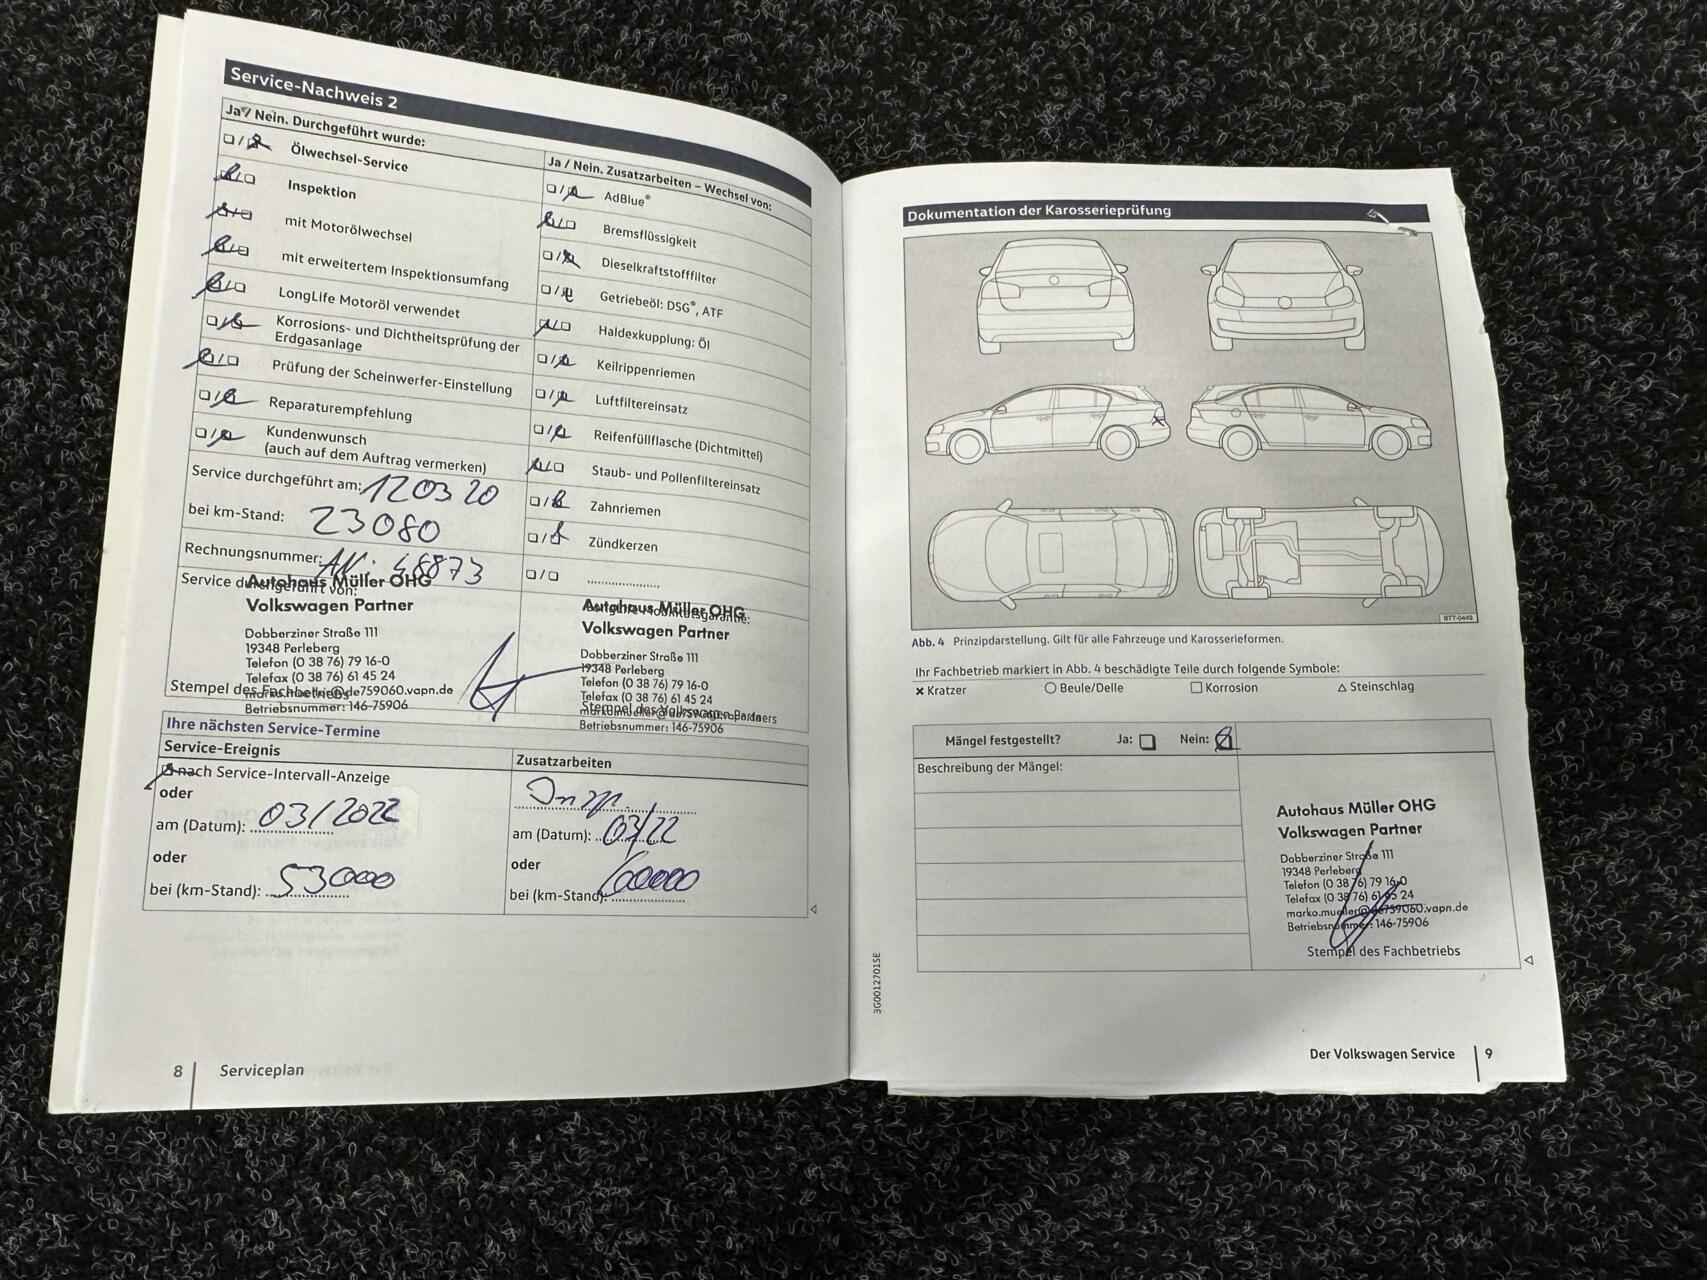 Service-Nachweis 2
Ja / Nein. Durchgeführt wurde:
Ölwechsel-Service
Inspektion
mit Motorölwechsel
mit erweitertem Inspektionsumfang
LongLife Motoröl verwendet
Korrosions- und Dichtheitsprüfung der
Erdgasanlage
Prüfung der Scheinwerfer-Einstellung
Reparaturempfehlung
Kundenwunsch
(auch auf dem Auftrag vermerken)
Service durchgeführt am: 120320
bei km-Stand: 23080
Rechnungsnummer:
Service durchgeführt von:
Autohaus Müller OHG
Volkswagen Partner
Dobberziner Straße 111
19348 Perleberg
Telefon (0 38 76) 79 16-0
Telefax (0 38 76) 61 45 24
Stempel des Fachbetriebs
Betriebsnummer: 146-75906
Ja / Nein. Zusatzarbeiten – Wechsel von:
AdBlue®
Bremsflüssigkeit
Dieselkraftstofffilter
Getriebeöl: DSG®, ATF
Haldexkupplung: Öl
Keilrippenriemen
Luftfiltereinsatz
Reifenfüllflasche (Dichtmittel)
Staub- und Pollenfiltereinsatz
Zahnriemen
Zündkerzen
Autohaus Müller OHG
Volkswagen Partner
Dobberziner Straße 111
19348 Perleberg
Telefon (0 38 76) 79 16-0
Telefax (0 38 76) 61 45 24
Stempel des Volkswagen Partners
Betriebsnummer: 146-75906
Ihre nächsten Service-Termine
Service-Ereignis
nach Service-Intervall-Anzeige
oder
am (Datum): 03/2022
oder
bei (km-Stand): 53000
Zusatzarbeiten
am (Datum): 03/22
oder
bei (km-Stand): 60000
8 Serviceplan
Dokumentation der Karosserieprüfung
BTT-0449
Abb. 4 Prinzipdarstellung. Gilt für alle Fahrzeuge und Karosserieformen.
Ihr Fachbetrieb markiert in Abb. 4 beschädigte Teile durch folgende Symbole:
Kratzer Beule/Delle Korrosion Steinschlag
Mängel festgestellt? Ja: Nein:
Beschreibung der Mängel:
Autohaus Müller OHG
Volkswagen Partner
Dobberziner Straße 111
19348 Perleberg
Telefon (0 38 76) 79 16-0
Telefax (0 38 76) 61 45 24
marko.mueller@de759060.vapn.de
Betriebsnummer: 146-75906
Stempel des Fachbetriebs
3G0012701SE
Der Volkswagen Service 9